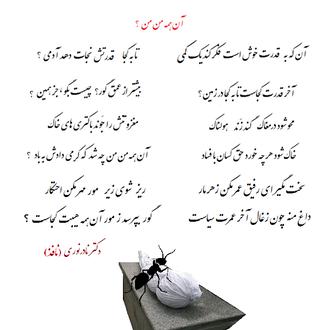 آن همه من من ؟
آن که به قدرت خوش است فکر کند یک کمی تا به کجا قدرتش نجات دهد آدمی ؟
آخر قدرت کجاست تا به کجا در زمین؟ بیشتر از عمق گور؟ چیست بگو، جز همین ؟
محو شود در مغاک گند زند هولناک مغز و تنش را جَوَند باکتری های خاک
خاک شود هرچه خورد حق کسان با فساد آن همه من من چه شد که کرمی دادش به باد ؟
سخت مگیر ای رفیق عمر مکن زهرمار ریز شوی زیر مور صبر مکن احتکار
داغ منه چون زغال آخر عمرت سیاست گور بپرسد ز مور آن همه هیبت کجاست ؟
دکتر نادر نوری (نافذ)